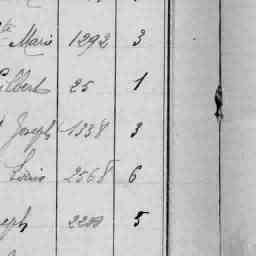 te Marie 1292 3
ilbert 25 1
Joseph 1338 3
Louis 2568 6
eph 2200 5